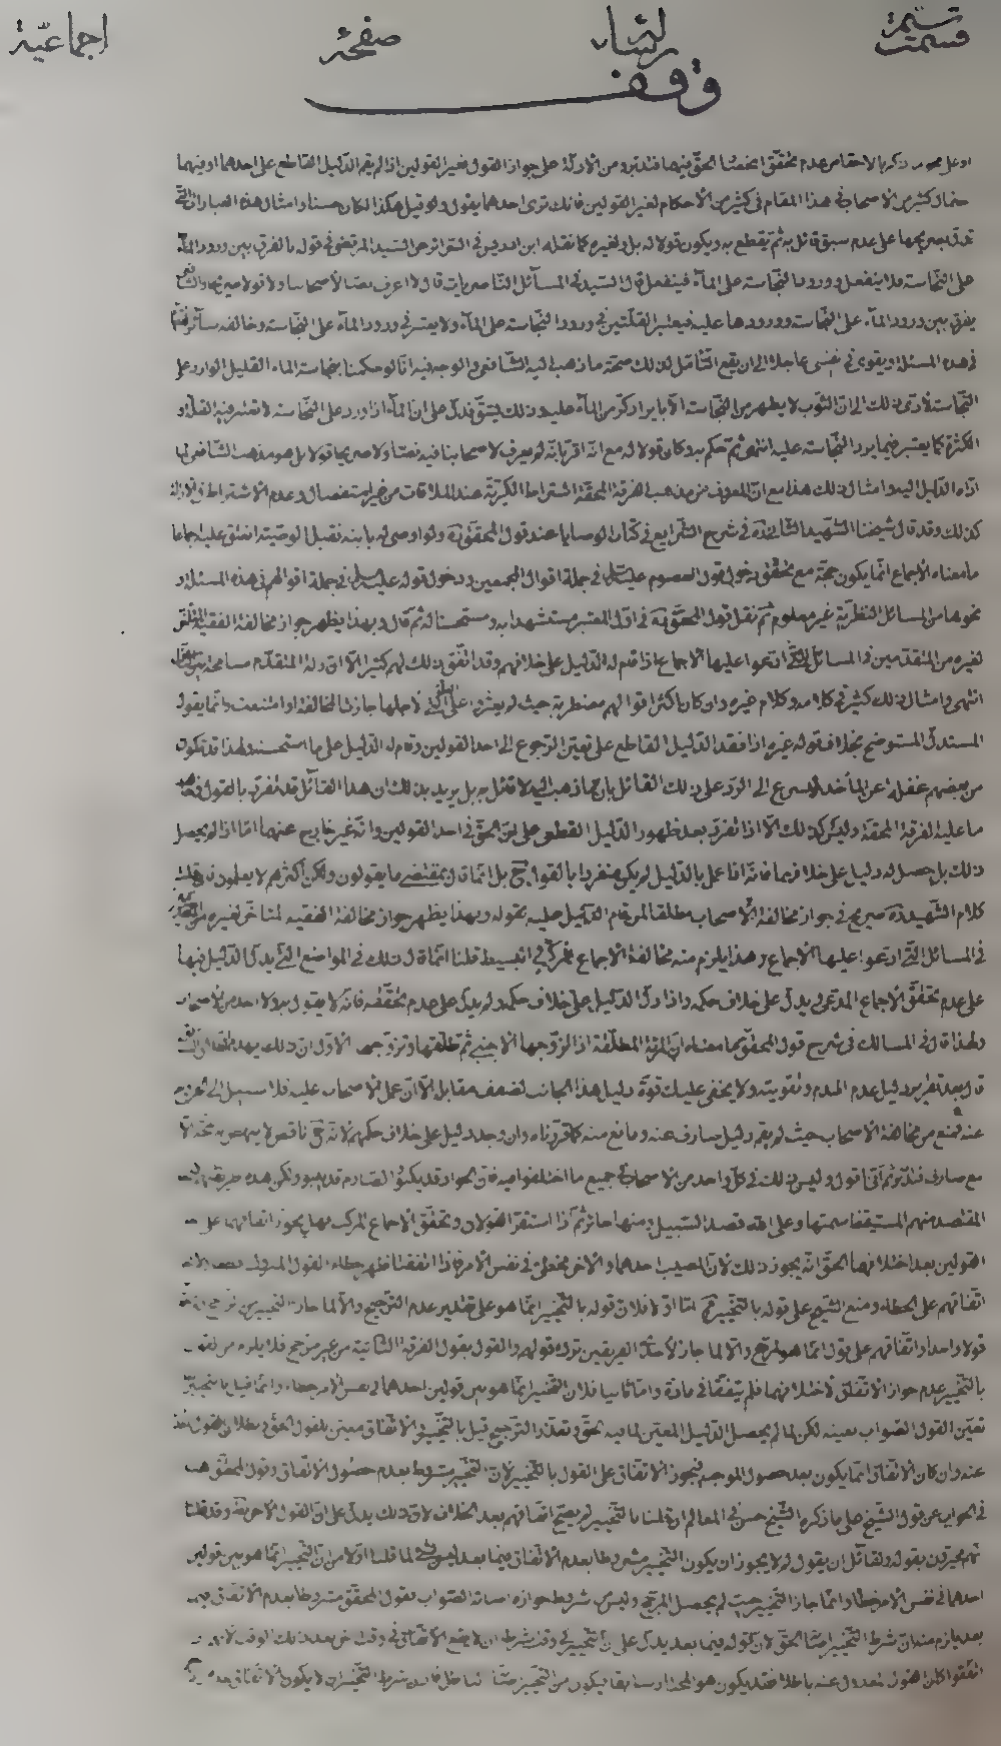 قسمت رسالة صفحة اجماعيّة
وقف
تحقق انحصار الحق فيهما فتدبر ومن الادلة على جواز القول بغير القولين اذا لم يقم الدليل القاطع على احدهما او فيهما
كثير من الاصحاب في هذا المقام في كثير من الاحكام لغير القولين فانك ترى احدهما يقول ولو قيل هكذا لكان حسنا وامثال هذه العبارات التي
على عدم سبق قائل به ثم يقطع به ويكون قولا له بل ولغيره كما نقله ابن ادريس في السرائر عن السيد المرتضى في قوله بالفرق بين ورود الماء
على النجاسة فلا ينفعل وورود النجاسة على الماء فينفعل قال السيد في المسائل الناصريات قال لا اعرف نصا لاصحابنا ولا قولا صريحا والشافعي
يفرق بين ورود الماء على النجاسة وورودها عليه فيعتبر القلتين في ورود النجاسة على الماء ولا يعتبر في ورود الماء على النجاسة وخالفه سائر الفقهاء
في هذه المسئلة ويقوى في نفسي عاجلا الى ان يقع التأمل لذلك صحة ما ذهب اليه الشافعي والوجه فيه انا لو حكمنا بنجاسة الماء القليل الوارد على
النجاسة لادى ذلك الى ان الثوب لا يطهر من النجاسة الا بايراد كر من الماء عليه وذلك يشق فدل على ان الماء اذا ورد على النجاسة لا تعتبر فيه القلة و
الكثرة كما يعتبر فيما يرد النجاسة عليه انتهى ثم حكم به وكان قولا له مع انه اقر بانه لم يعرف لاصحابنا فيه نصا ولا صريحا قولا بل هو مذهب الشافعي
الدليل اليه وامثال ذلك هذا مع ان المعروف من مذهب الفرقة المحقة اشتراط الكرية عند الملاقات من غير استفصال وعدم الاشتراط
كذلك وقد قال شيخنا الشهيد الثاني ره في شرح الشرايع في كتاب الوصايا عند قول المحقق ره ولو اوصى له بابنه فقبل الوصية انعتق عليه اجماعا
ما معناه الاجماع انما يكون حجة مع تحقق دخول قول المعصوم عليه السلام في جملة اقوال المجمعين ودخول قوله عليه السلام في جملة اقوالهم في هذه المسئلة و
نحوها من المسائل النظرية غير معلوم ثم نقل قول المحقق ره في اول المعتبر مستشهدا به ومستحسنا له ثم قال وبهذا يظهر جواز مخالفة الفقيه المتأخر
لغيره من المتقدمين في المسائل التي ادعوا عليها الاجماع اذا قام له الدليل على خلافهم وقد اتفق ذلك لهم كثيرا الا ان زلة المتقدم مسامحة
انتهى وامثال ذلك كثير في كلامه وكلام غيره وان كان اكثر اقوالهم مضطربة حيث لم يعثروا على العلة التي لاجلها جازت المخالفة او امتنعت وانما يقول
المستدل المستوضح بخلاف قوله غيره اذا فقد الدليل القاطع على تعين الرجوع الى احد القولين وقام له الدليل على ما استحسنه ولهذا قد تكون
من بعضهم غفلة عن المأخذ فيسرع الى الرد على ذلك القائل بان ما ذهب اليه لا قائل به بل يريد بذلك ان هذا القائل قد تفرد بالقول
ما عليه الفرقة المحقة وليس كذلك الا اذا تفرد بعد ظهور الدليل القطعي على ان الحق في احد القولين وانه غير خارج عنهما اما اذا لم يحصل
ذلك بل حصل له دليل على خلافهما فانه اذا عمل بالدليل لم يكن منفردا بالقول ح بل انما قال بمقتضى ما يقولون ولكن اكثرهم لا يعلمون فان قلت
كلام الشهيد ره صريح في جواز مخالفة الاصحاب مطلقا لمن قام الدليل عليه بقوله وبهذا يظهر جواز مخالفة الفقيه المتأخر لغيره من المتقدمين
في المسائل التي ادعوا عليها الاجماع وهذا يلزم منه مخالفة الاجماع غير المركب اي البسيط قلنا انما قال ذلك في المواضع التي يدل الدليل فيها
على عدم تحقق الاجماع المدعى ويدل على خلاف حكمه واذا دل الدليل على خلاف حكمه ولم يدل على عدم تحققه فانه لا يقول به ولا احد من الاصحاب
ولهذا قال في المسالك في شرح قول المحقق بما معناه ان المرئة المطلقة اذا تزوجها الاجنبي ثم طلقها وتزوجها الاول ان ذلك يهدم
قال بعد تقرير دليل عدم الهدم وتقويته ولا يخفى عليك قوة دليل هذا الجانب لضعف مقابله الا ان عمل الاصحاب عليه فلا سبيل الى الخروج
عنه فمنع من مخالفة الاصحاب حيث لم يقم دليل صارف عنه ومانع منه كما قررناه وان وجد دليل على خلاف حكمهم لانه ح ناقص لا ينهض بحجة الا
مع صارف فتدبر ثم اني اقول وليس ذلك في كل واحد من الاصحاب في جميع ما اختلفوا فيه فان الجواد قد يكبو والصارم قد ينبو ولكن هذه طريقة
المقتصد منهم المستيقظ سمتها وعلى الله قصد السبيل ومنها جائر ثم اذا استقر القولان وتحقق الاجماع المركب فهل يجوز اتفاقهما على
القولين بعد اختلافهما الحق انه يجوز ذلك لان المصيب احدهما والاخر مخطئ في نفس الامر فاذا اتفقا ظهر خطاء القول المتروك
اتفاقهم على الخطاء ومنع الشيخ على قوله بالتخيير اما اولا فلان قوله بالتخيير انما هو على تقدير عدم الترجيح والا لما جاز التخيير
قولا واحدا واتفاقهم على قول انما هو لمرجح والا لما جاز لاحد الفريقين ترك قولهم والقول بقول الفرقة الثانية من غير مرجح فلا يلزم من
بالتخيير عدم جواز الاتفاق لاختلافهما فلم يتفقا في مادة واما ثانيا فلان التخيير انما هو بين قولين احدهما في نفس الامر خطاء وانما قيل بالتخيير
تعين القول الصواب بعينه لكن لما لم يحصل الدليل المعين لما فيه الحق وتعذر الترجيح قيل بالتخيير والاتفاق معين للقول الحق وبطلان القول
عنه وان كان الاتفاق انما يكون بعد حصول الموجب فيجوز الاتفاق على القول بالتخيير لان التخيير مشروط بعدم حصول الاتفاق وقول المحقق
في الجواب عن قول الشيخ على ما ذكره الشيخ حسن في المعالم اذ قلنا بالتخيير لم يصح اتفاقهم بعد الخلاف لان ذلك يدل على ان القول الاخر باطل وقد قلنا
انهم مخيرون بقوله ولقائل ان يقول لم لا يجوز ان يكون التخيير مشروطا بعدم الاتفاق فيما بعد ليس بشيء لما قلنا اولا من ان التخيير انما هو بين قولين
احدهما في نفس الامر خطاء وانما جاز التخيير حيث لم يحصل المرجح وليس شرط جوازه اصابة الصواب فقول المحقق مشروط بعدم الاتفاق فيما
بعد يلزم منه ان شرط التخيير اصابة الحق لان قوله فيما بعد يدل على ان التخيير في وقت شرطه ان لا يقع الاتفاق في وقت اخر بعد ذلك الوقت